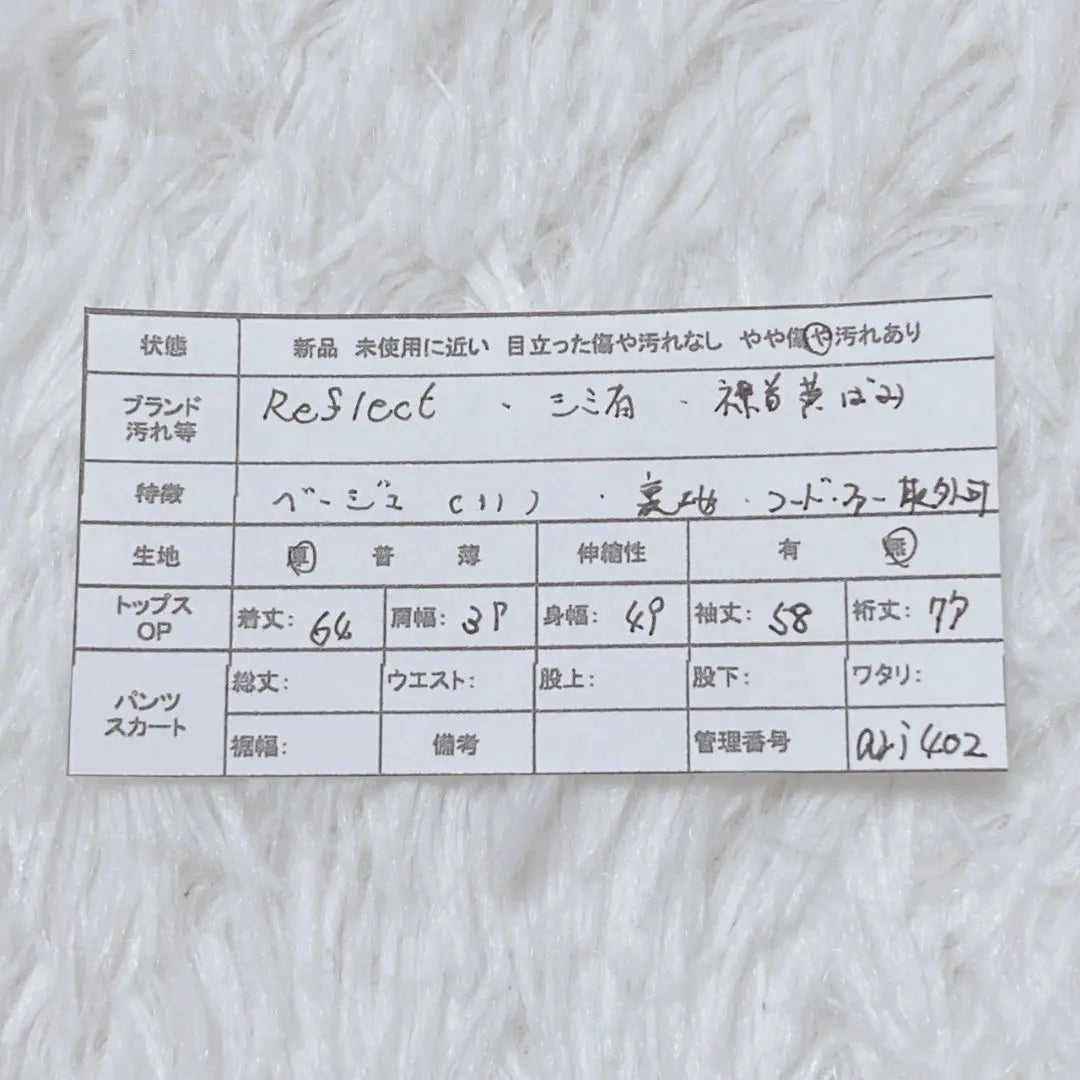 状態 新品 未使用に近い 目立った傷や汚れなし やや傷や汚れあり
ブランド 汚れ等 Reflect ・ シミ有 ・ 襟首黄ばみ
特徴 ベージュ (11) ・ 裏地 ・ フード・ファー取外可
生地 厚 普 薄 伸縮性 有 無
トップス OP 着丈: 64 肩幅: 37 身幅: 49 袖丈: 58 裄丈: 77
パンツ スカート 総丈: ウエスト: 股上: 股下: ワタリ:
裾幅: 備考 管理番号 ari402